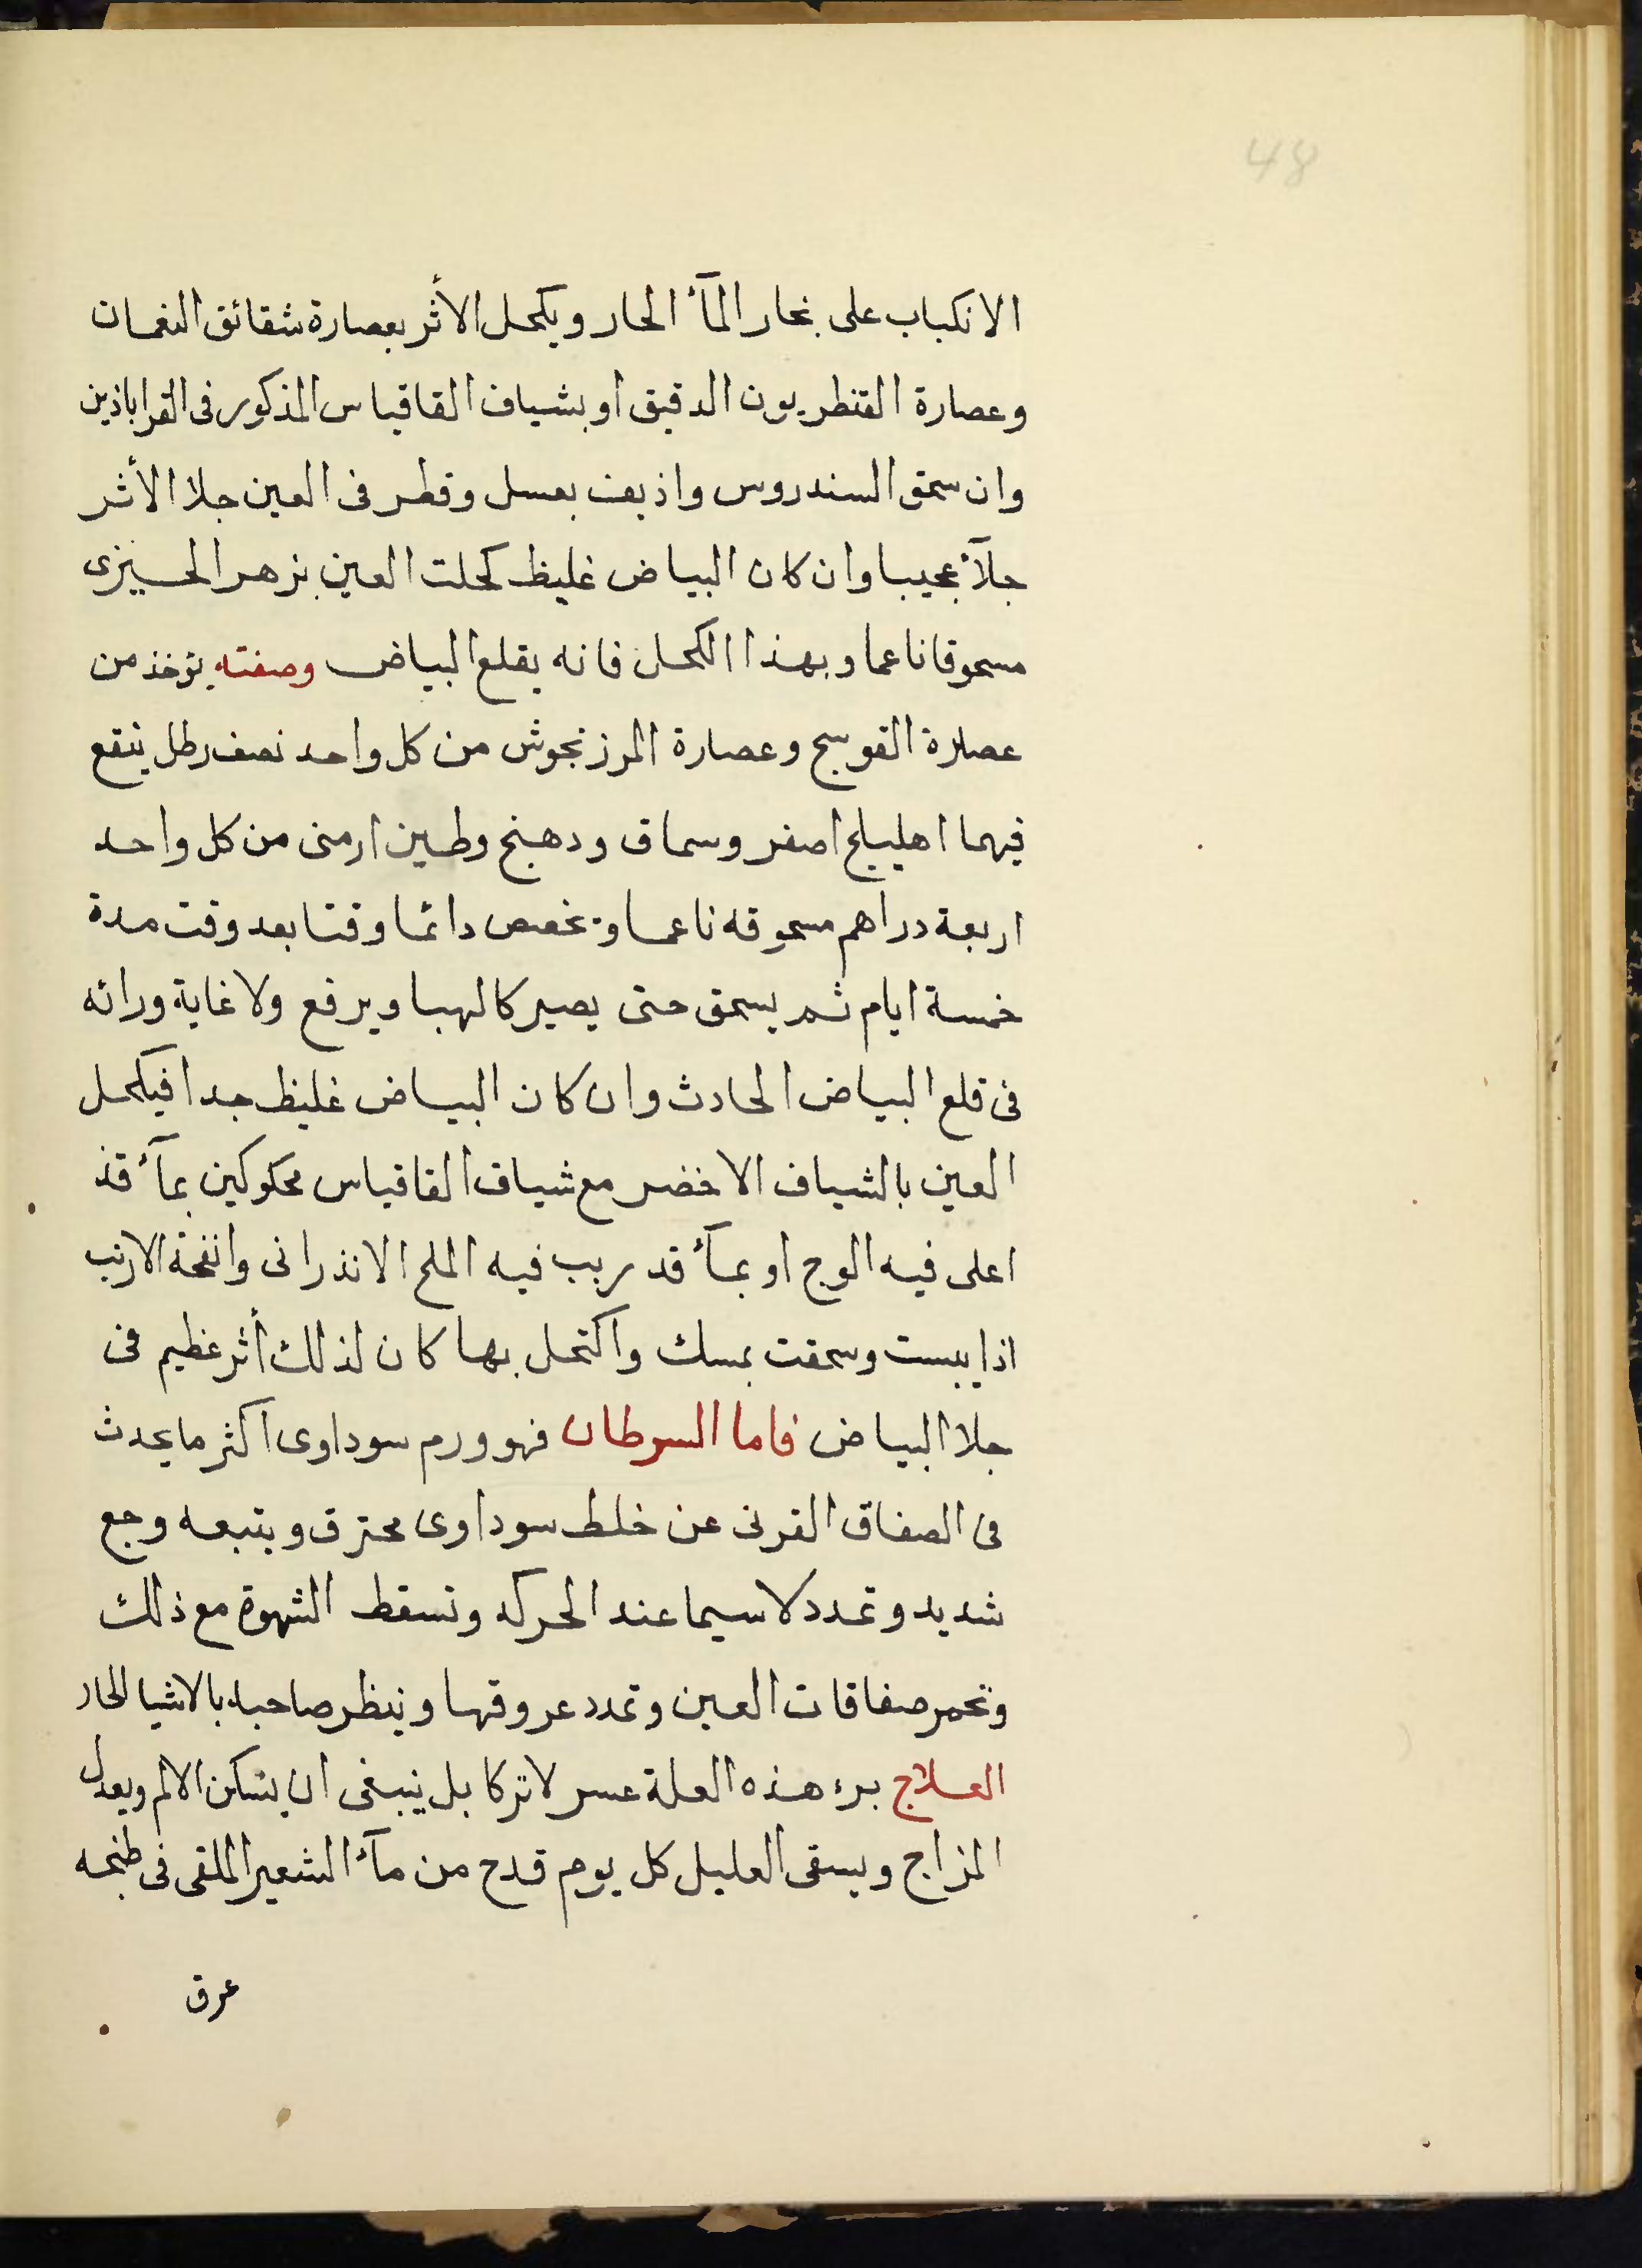 48
الانكباب على بخار المآء الحار ويكحل الأثر بعصارة شقائق النعمان
وعصارة القنطريون الدقيق او بشياف القاقياس المذكور فى القراباذين
وان سحق السندروس واذيف بعسل وقطر فى العين جلا الأثر
جلآء عجيبا وان كان البياض غليظ كحلت العين بزهر الخيزى
مسحوقا ناعما وبهذا الكحل فانه يقلع البياض وصفته يؤخذ من
عصارة القوسج وعصارة المرزنجوش من كل واحد نصف رطل ينقع
فيهما اهليلج اصفر وسماق ودهنج وطين ارمنى من كل واحد
اربعة دراهم مسحوقه ناعما وتخضخض دائما وقتا بعد وقت مدة
خمسة ايام ثم يسحق حتى يصير كالهبا ويرفع ولا غاية ورائه
فى قلع البياض الحادث وان كان البياض غليظ جدا فيكحل
العين بالشياف الاخضر مع شياف القاقياس محكوكين بمآء قد
اعلى فيه الوج او بمآء قد ربب فيه الملح الانذرانى وانفحة الارنب
اذا يبست وسحقت بمسك واكتحل بها كان لذلك أثر عظيم فى
جلا البياض فاما السرطان فهو ورم سوداوى اكثر ما يحدث
فى الصفاق القرنى عن خلط سوداوى محترق ويتبعه وجع
شديد وتمدد لا سيما عند الحركه وتسقط الشهوة مع ذلك
وتحمر صفاقات العين وتمدد عروقها وينظر صاحبه بالاشيا الحار
العلاج برء هذه العلة عسر لا تركا بل ينبغى ان يسكن الالم ويعدل
المزاج ويسقى العليل كل يوم قدح من مآء الشعير الملقى فى طبخه
عرق